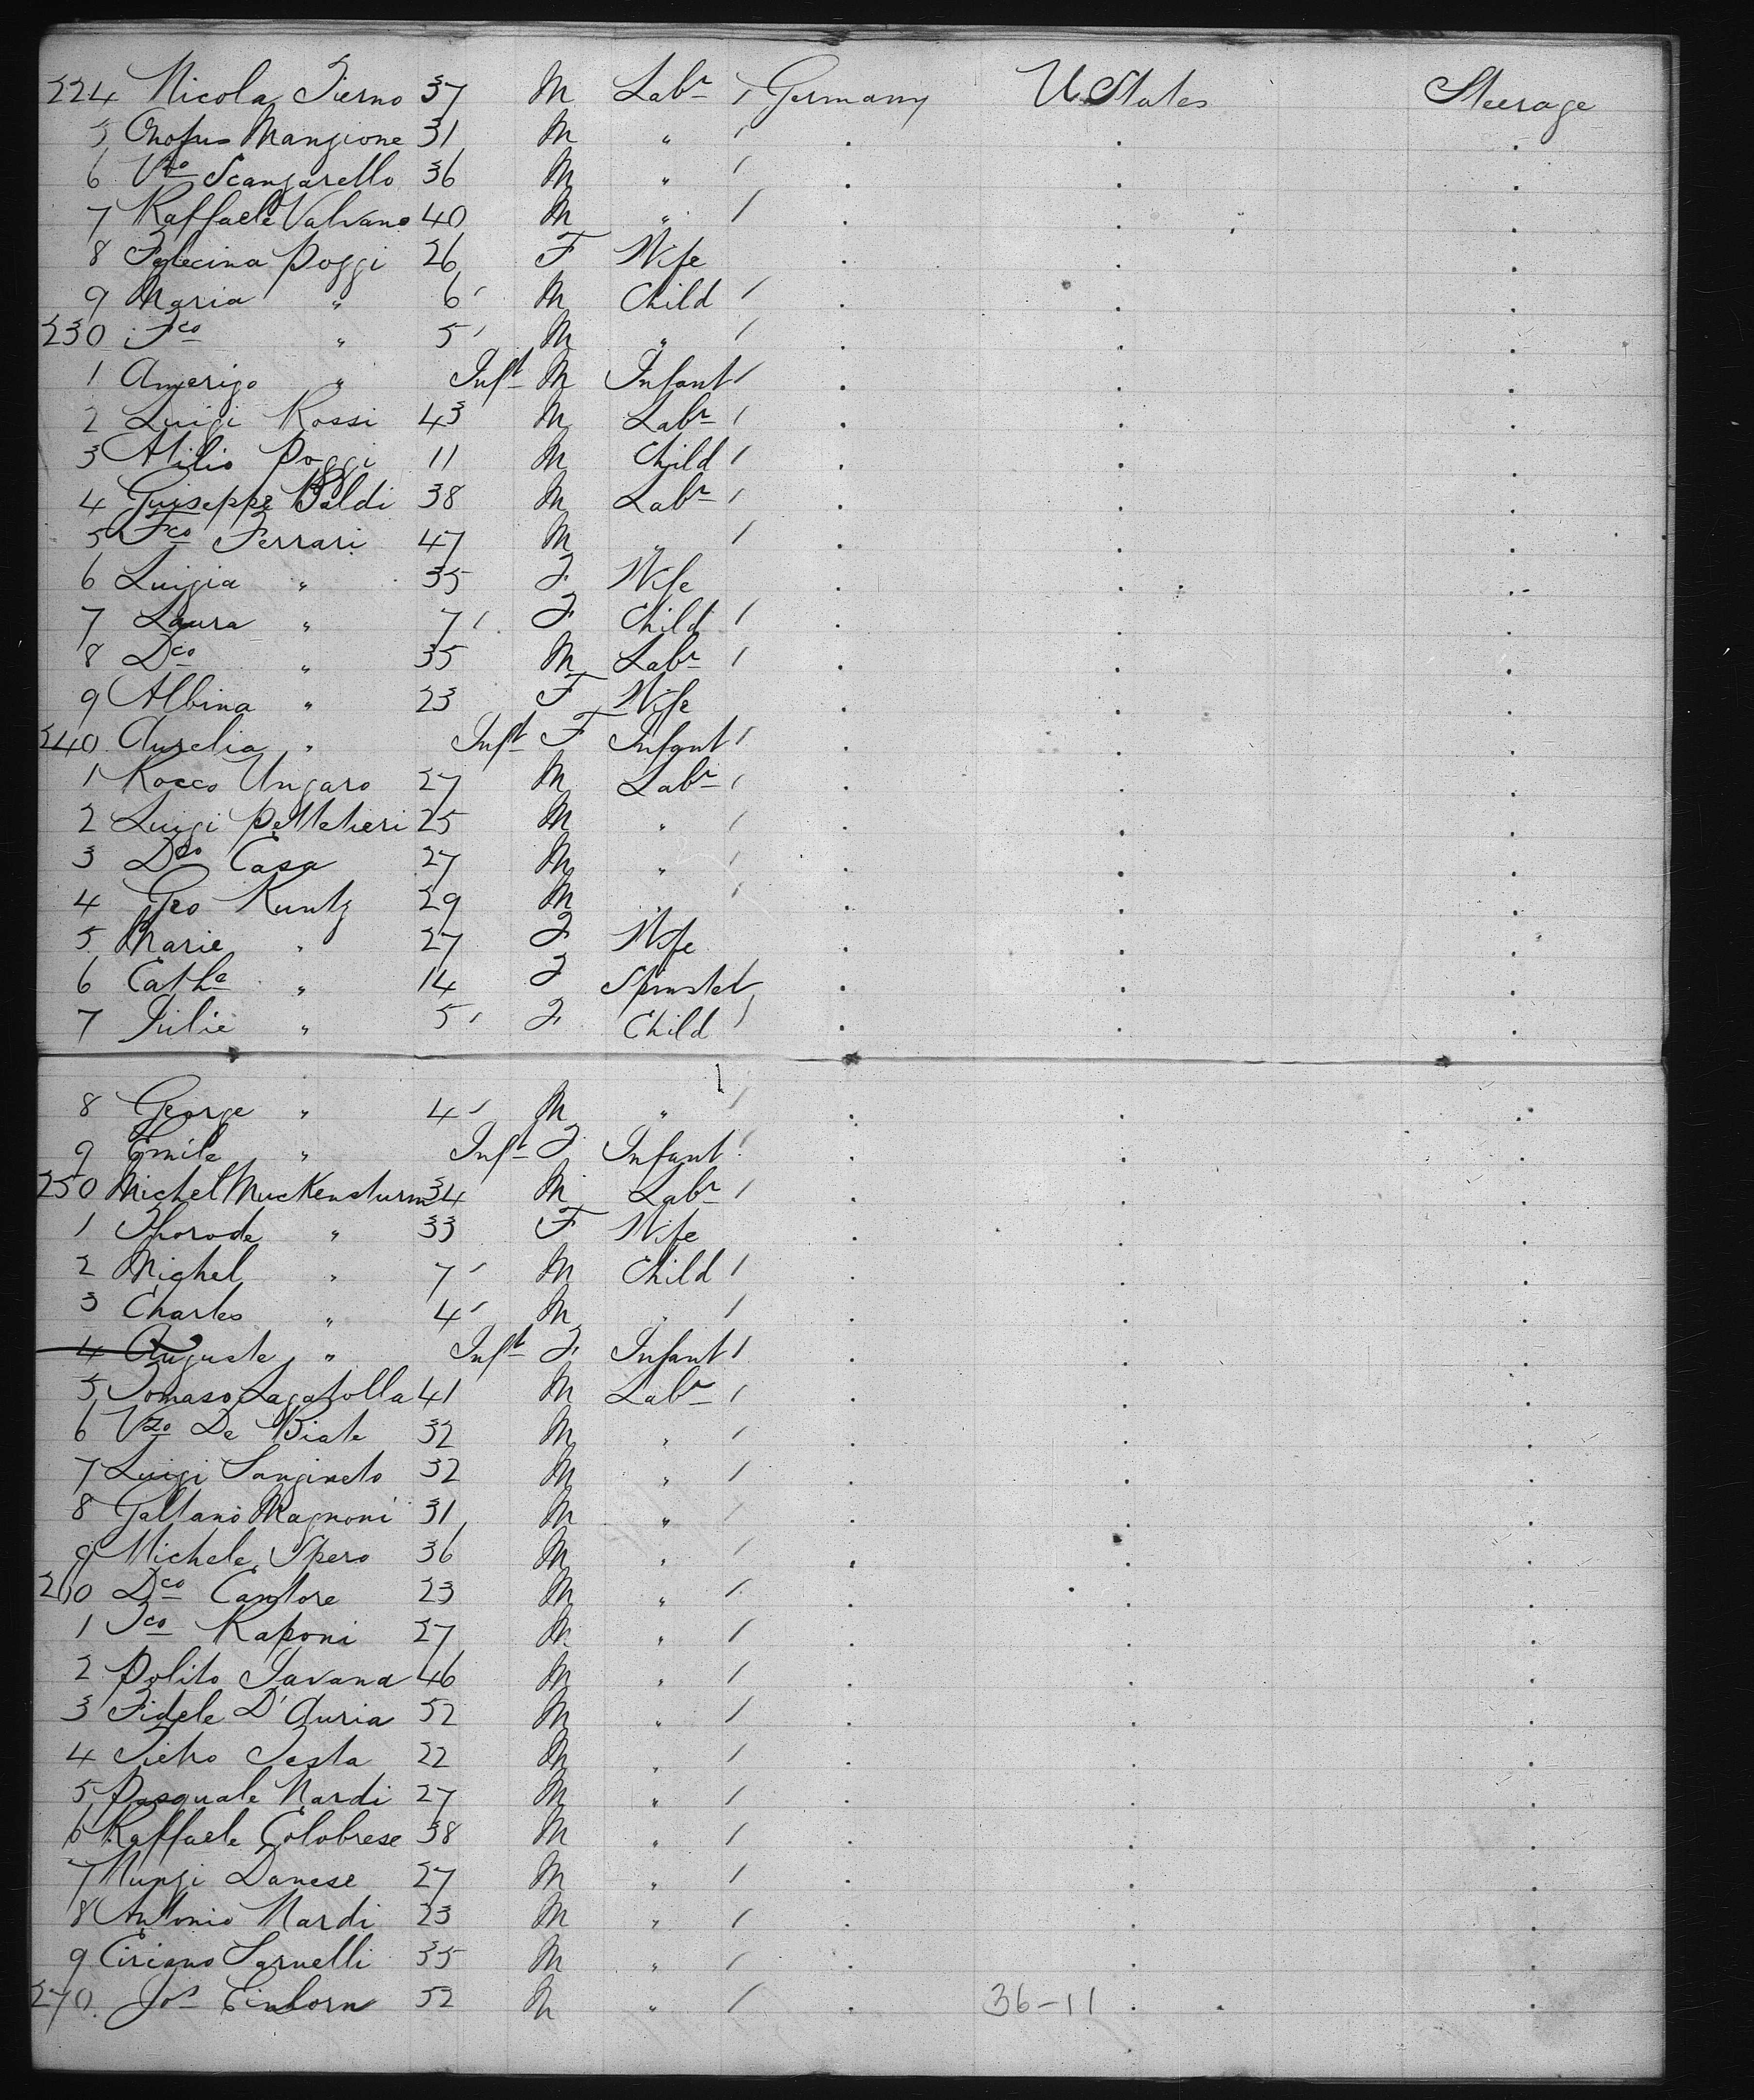 224 Nicola Fierno 37 M Labr / Germany U. States Steerage
5 Onofrio Mangione 31 M " / . . .
6 Vzo Scangarello 36 M " / . . .
7 Raffaele Valvano 40 M " / . . .
8 Felecina Poggi 26 F Wife . . .
9 Maria " 6 M Child / . . .
230 Fco " 5 M " / . . .
1 Amerigo " Inft M Infant / . . .
2 Luigi Rossi 43 M Labr / . . .
3 Atilio Poggi 11 M Child / . . .
4 Guiseppe Baldi 38 M Labr / . . .
5 Fco Ferrari 47 M " / . . .
6 Luigia " 35 F Wife . . .
7 Laura " 7 F Child / . . .
8 Dco " 35 M Labr / . . .
9 Albina " 23 F Wife . . .
240 Aurelia " Inft F Infant / . . .
1 Rocco Ungaro 27 M Labr / . . .
2 Luigi Pelletieri 25 M " / . . .
3 Dco Casa 27 M " / . . .
4 Geo Kuntz 29 M " / . . .
5 Marie " 27 F Wife . . .
6 Cathe " 14 F Spinster / . . .
7 Julie " 5 F Child / . . .
8 George " 4 M " / . . .
9 Emile " Inft F Infant / . . .
250 Michel Muckensturm 34 M Labr / . . .
1 " 33 F Wife . . .
2 Michel " 7 M Child / . . .
3 Charles " 4 M " / . . .
4 Auguste " Inft F Infant / . . .
5 Tomaso Lagatolla 41 M Labr / . . .
6 Vzo De Biate 32 M " / . . .
7 Luigi Sangineto 32 M " / . . .
8 Galtano Magnoni 31 M " / . . .
9 Michele Spero 36 M " / . . .
260 Dco Cantore 23 M " / . . .
1 Fco Raponi 27 M " / . . .
2 Polito Savana 46 M " / . . .
3 Fidele D'Auria 52 M " / . . .
4 Pietro Testa 22 M " / . . .
5 Pasquale Nardi 27 M " / . . .
6 Raffaele Colobrese 38 M " / . . .
7 Nunzi Danese 27 M " / . . .
8 Antonio Nardi 23 M " / . . .
9 Ciriano Sarnelli 35 M " / . . .
270 Jos Einhorn 52 M " / . 36-11 . .